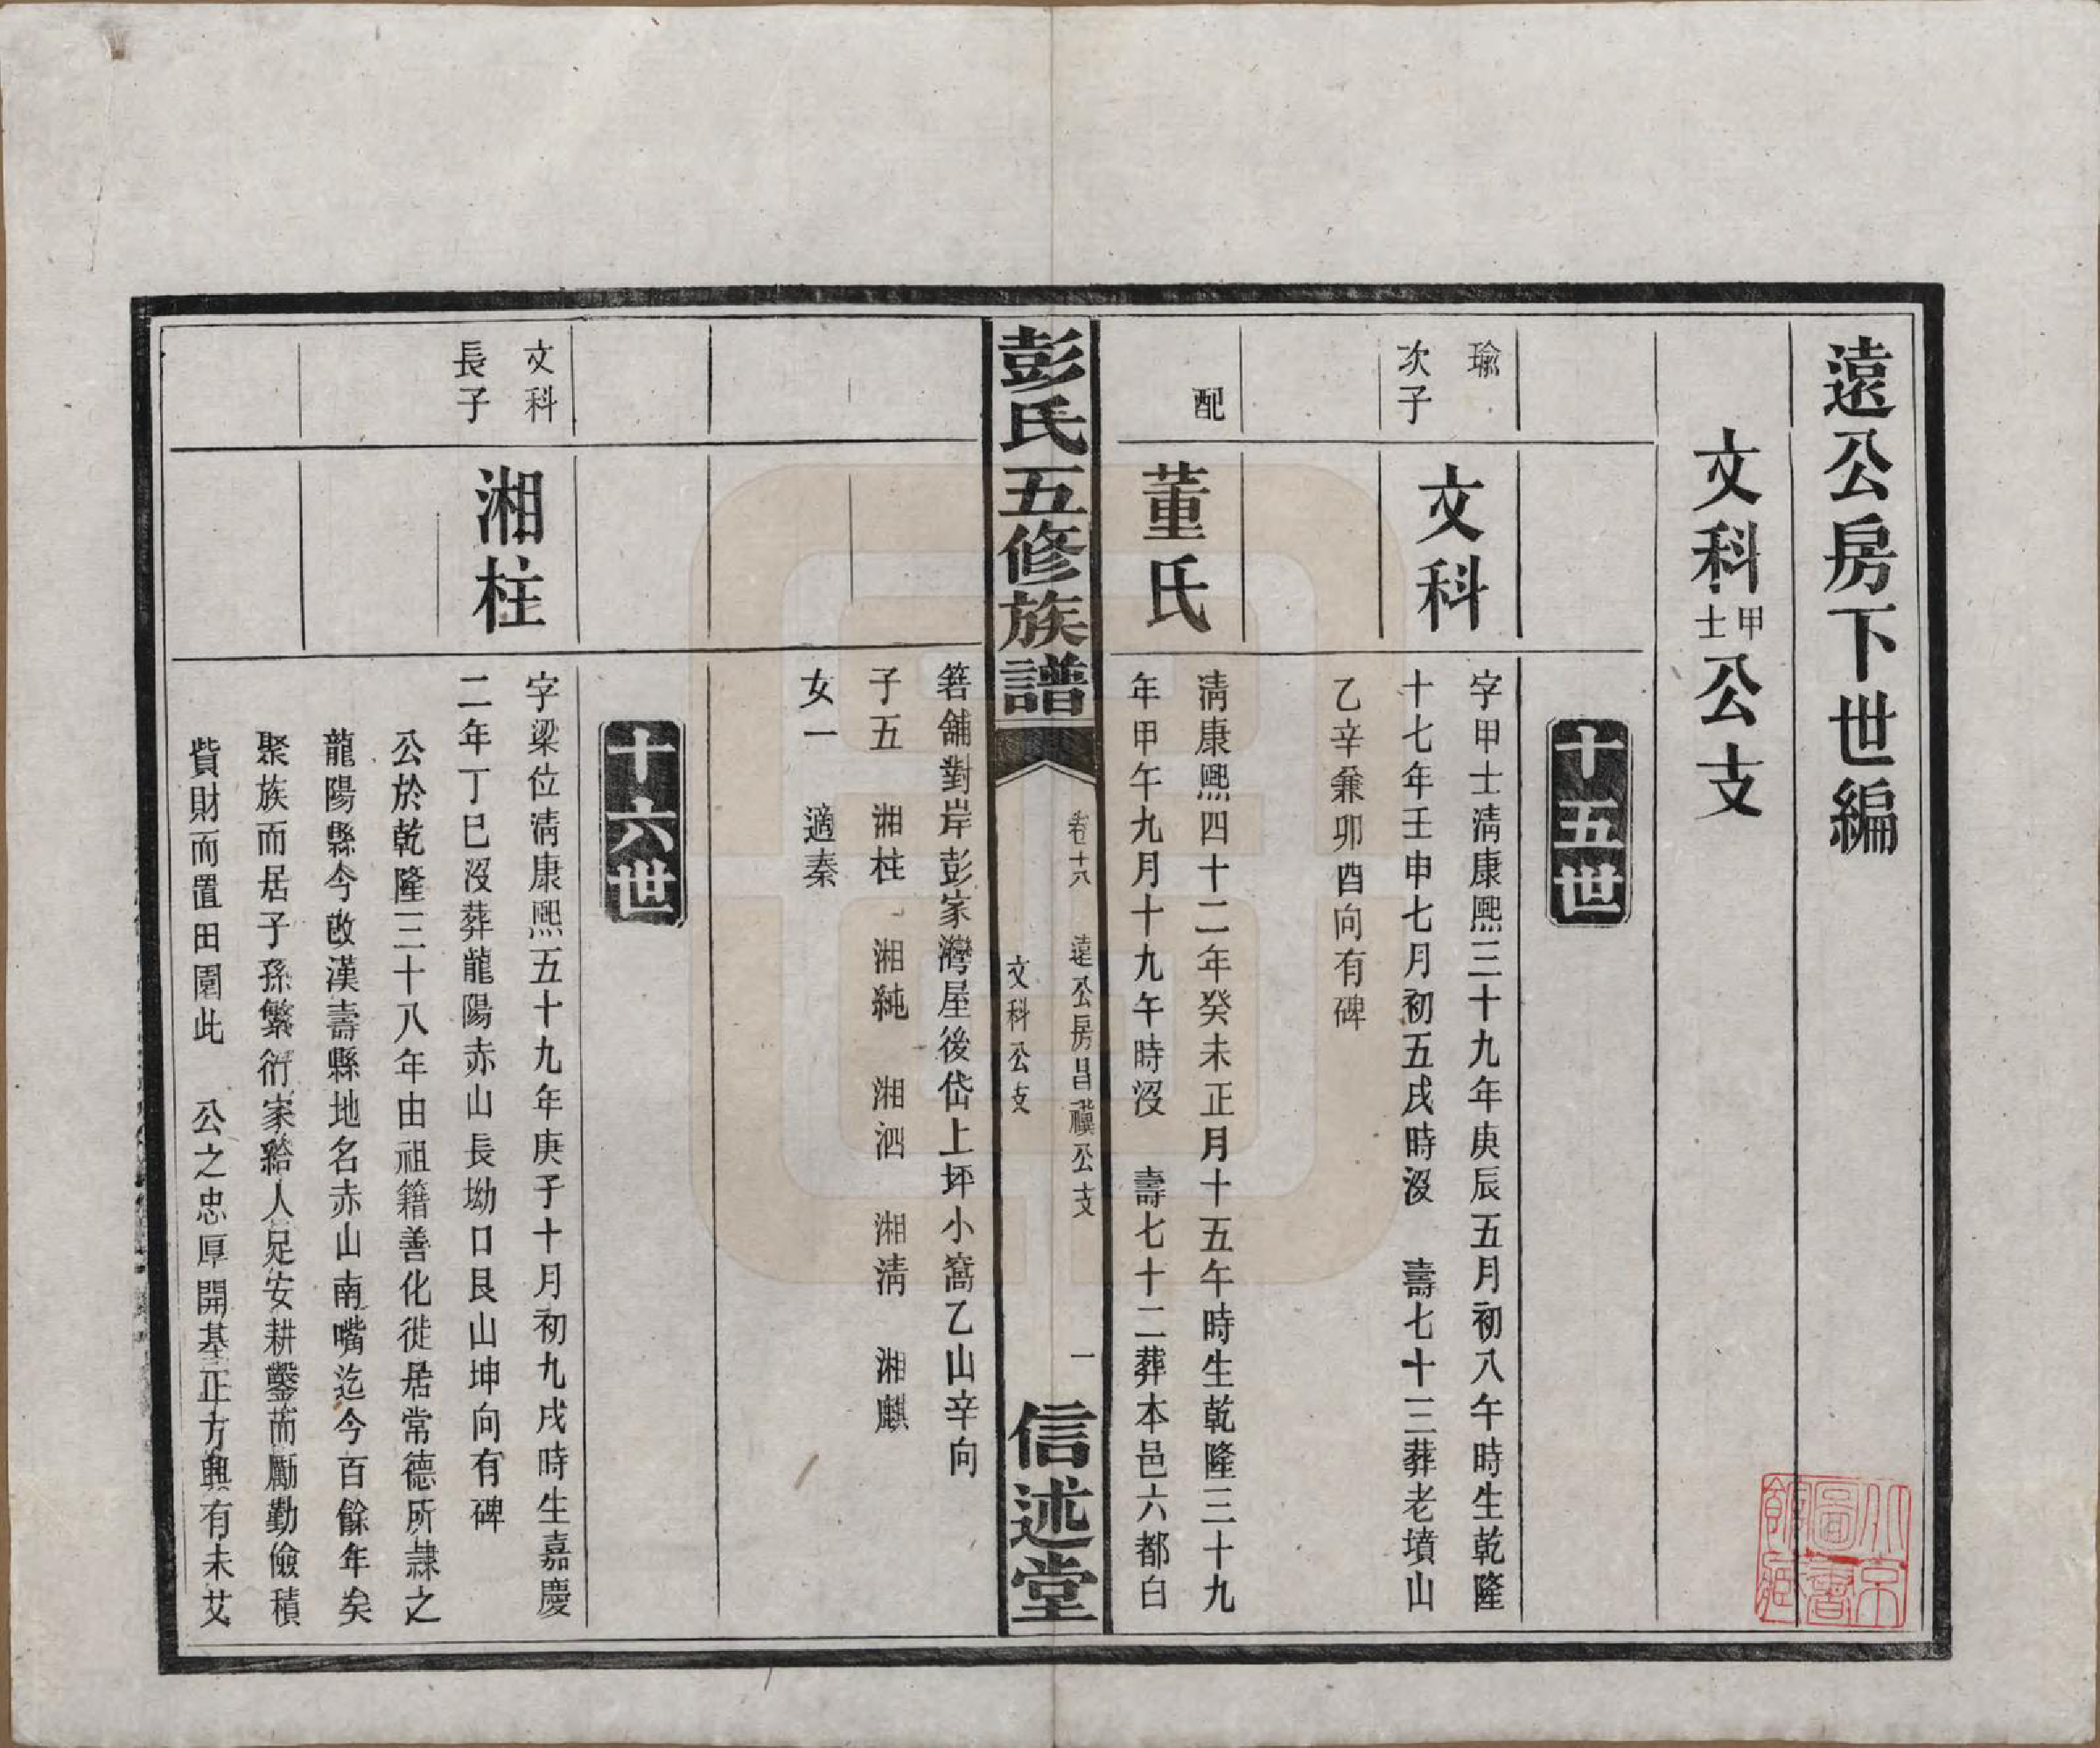 遠公房下世編
文科甲士公支
十五世
瑜
次子
文科
字甲士清康熙三十九年庚辰五月初八午時生乾隆
十七年壬申七月初五戌時沒　壽七十三葬老墳山
乙辛兼卯酉向有碑
配
董氏
清康熙四十二年癸未正月十五午時生乾隆三十九
年甲午九月十九午時沒　壽七十二葬本邑六都白
彭氏五修族譜
卷十八　遠公房昌禩公支　一
文科公支
信述堂
箬舖對岸彭家灣屋後岱上坪小窩乙山辛向
子五　湘柱　湘純　湘泗　湘清　湘麒
女一　適秦
十六世
文科
長子
湘柱
字梁位清康熙五十九年庚子十月初九戌時生嘉慶
二年丁巳沒葬龍陽赤山長坳口艮山坤向有碑
公於乾隆三十八年由祖籍善化徙居常德所隸之
龍陽縣今改漢壽縣地名赤山南嘴迄今百餘年矣
聚族而居子孫繁衍家給人足安耕鑿而勵勤儉積
貲財而置田園此　公之忠厚開基正方興有未艾
北京圖書館藏